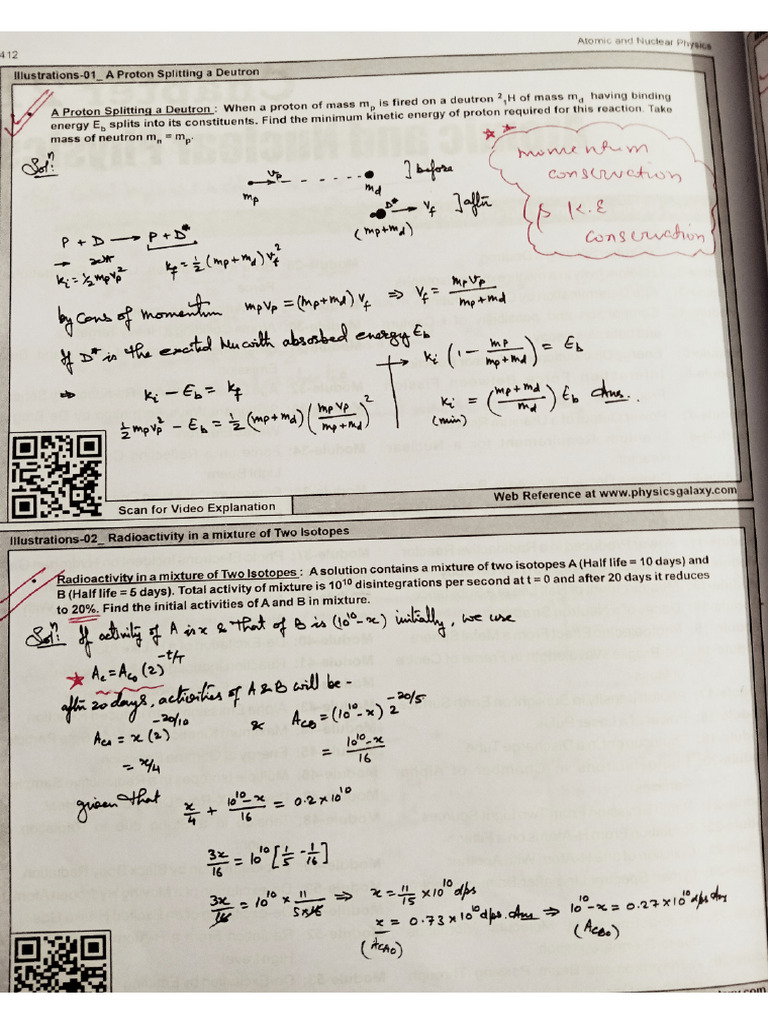 412
Atomic and Nuclear Physics
Illustrations-01_ A Proton Splitting a Deutron
A Proton Splitting a Deutron : When a proton of mass mₚ is fired on a deutron ²₁H of mass m_d having binding
energy E_b splits into its constituents. Find the minimum kinetic energy of proton required for this reaction. Take
mass of neutron mₙ = mₚ.
Solⁿ:
momentum
conservation
β K.E
conservation
vₚ
mₚ
m_d
] before
D* → v_f ] after
(mₚ+m_d)
P + D → P + D*
→ rest
kᵢ = ½ mₚvₚ²
k_f = ½ (mₚ+m_d) v_f²
by Cons of momentum mₚvₚ = (mₚ+m_d) v_f ⇒ v_f = mₚvₚ / mₚ+m_d
If D* is the excited Nu with absosbed energy E_b
⇒ kᵢ − E_b = k_f
½ mₚvₚ² − E_b = ½ (mₚ+m_d) (mₚvₚ / mₚ+m_d)²
→ kᵢ (1 − mₚ / mₚ+m_d) = E_b
kᵢ = (mₚ+m_d / m_d) E_b Ans.
(min)
Scan for Video Explanation
Web Reference at www.physicsgalaxy.com
Illustrations-02_ Radioactivity in a mixture of Two Isotopes
Radioactivity in a mixture of Two Isotopes : A solution contains a mixture of two isotopes A (Half life = 10 days) and
B (Half life = 5 days). Total activity of mixture is 10¹⁰ disintegrations per second at t = 0 and after 20 days it reduces
to 20%. Find the initial activities of A and B in mixture.
Solⁿ: If activity of A is x & that of B is (10¹⁰−x) initially, we use
A_c = A_c₀ (2)^(−t/T)
after 20 days, activities of A & B will be -
A_cA = x (2)^(−20/10) & A_cB = (10¹⁰−x) 2^(−20/5)
= x/4
= 10¹⁰−x / 16
given that x/4 + 10¹⁰−x / 16 = 0.2 × 10¹⁰
3x/16 = 10¹⁰ [1/5 − 1/16]
3x/16 = 10¹⁰ × 11 / 5×16 ⇒ x = 11/15 × 10¹⁰ dps
x = 0.73 × 10¹⁰ dps. Ans ⇒ 10¹⁰−x = 0.27 × 10¹⁰ dps Ans
(A_cA₀)
(A_cB₀)